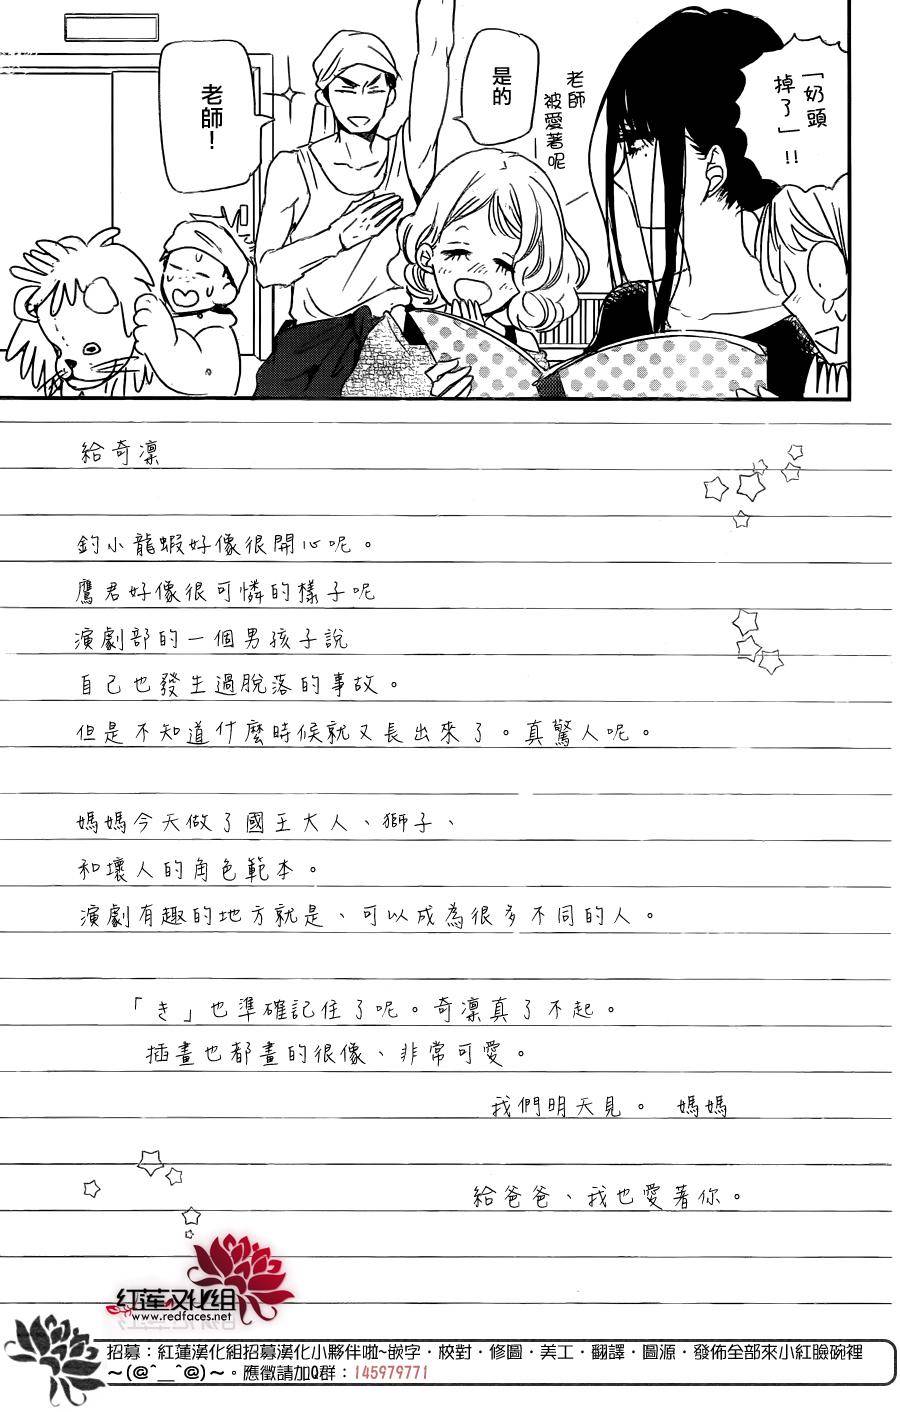 「奶頭
掉了」!!
老師
被愛著呢
是的
老師！
給奇凜
釣小龍蝦好像很開心呢。
鷹君好像很可憐的樣子呢
演劇部的一個男孩子說
自己也發生過脫落的事故。
但是不知道什麼時候就又長出來了。真驚人呢。
媽媽今天做了國王大人、獅子、
和壞人的角色範本。
演劇有趣的地方就是、可以成為很多不同的人。
「き」也準確記住了呢。奇凜真了不起。
插畫也都畫的很像、非常可愛。
我們明天見。 媽媽
給爸爸、我也愛著你。
紅蓮漢化組
www.redfaces.net
招募：紅蓮漢化組招募漢化小夥伴啦~嵌字・校對・修圖・美工・翻譯・圖源・發佈全部來小紅臉碗裡
～(@^__^@)～。應徵請加Q群：145979771